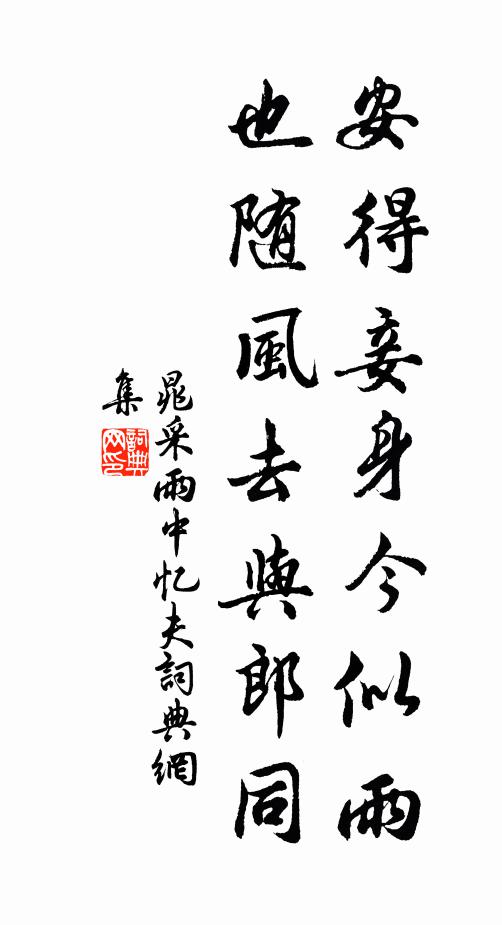 安得妾身今似雨
也随風去與郎同
晁采雨中忆夫詞典網
集
詞典
网印